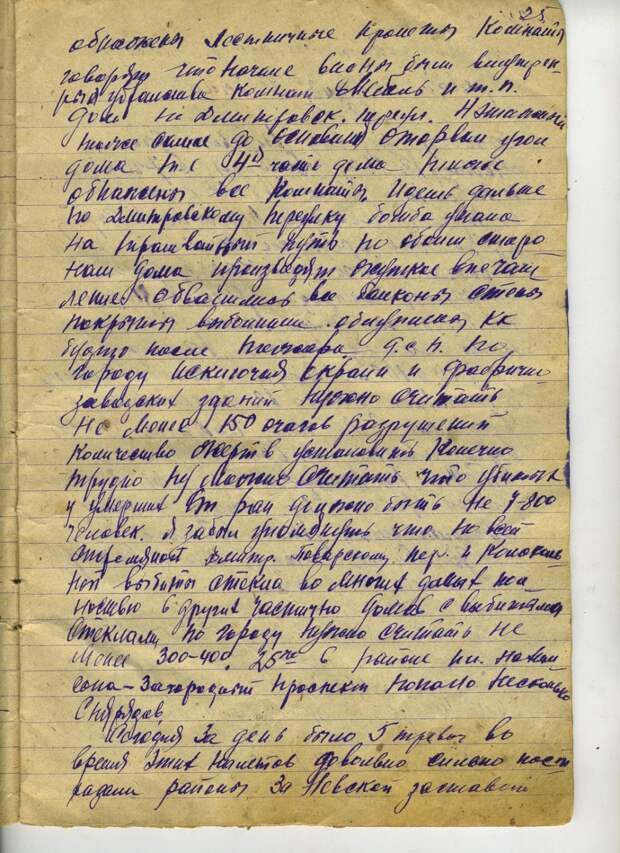 25
обнажены лестничные пролеты комнаты
говорят что начале видны были внутрен-
дом на Дмитровск. переул.
также до основания оторван угол
дома т.е 4ая часть дома также
обнажены все комнаты, идем дальше
по Дмитровскому переулку бомба упала
на трамвайный путь но обоим сторо
нам дома производят жуткое впечат
ление обвалились все балконы стены
покрыты выбоинами обгу как
будто после пожара д.с п. По
городу исключая окраин и фабрично
заводских зданий нужно считать
не менее 150 очагов разрушений
количество жертв установить конечно
трудно но можно считать что убитых
и умерших от ран должно быть не 7-800
человек. Я забыл упомянуть что по всей
Дмитр. Поварскому пер. и Колоколь
ной выбиты стекла во многих домах по
ностью в других частично домов с выбитыми
стеклами по городу нужно считать не
менее 300-400. 25го в районе пл. Нахим
сона - Загородный проспект попало несколько
снарядов,
Сегодня за день было 5 тревог во
время этих налетов довольно сильно пост
радали районы за Невской заставой